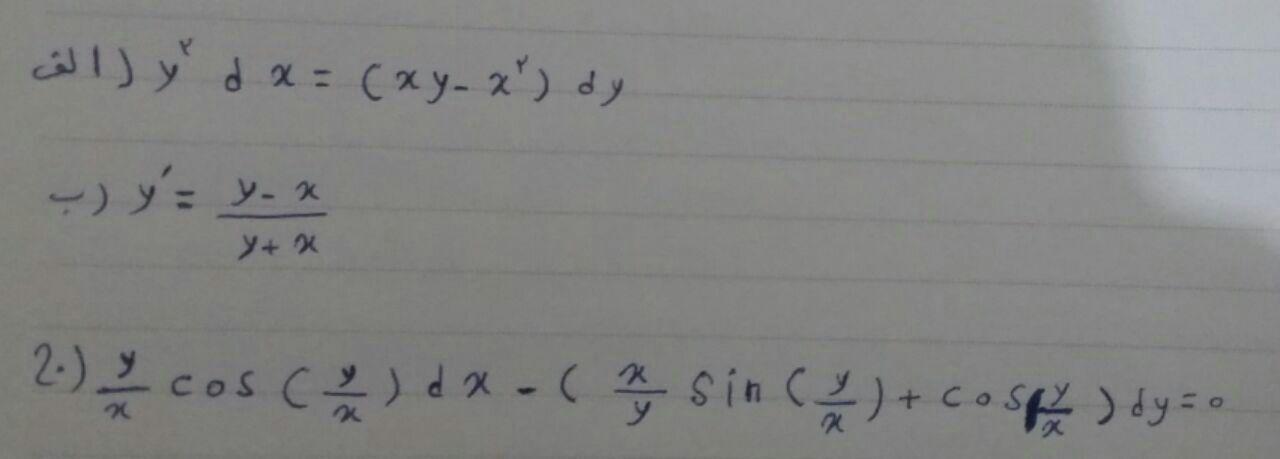 الف) y² dx = (xy - x²) dy
ب) y′ = \frac{y - x}{y + x}
2.) \frac{y}{x} cos(\frac{y}{x}) dx - (\frac{x}{y} sin(\frac{y}{x}) + cos \frac{y}{x}) dy = 0